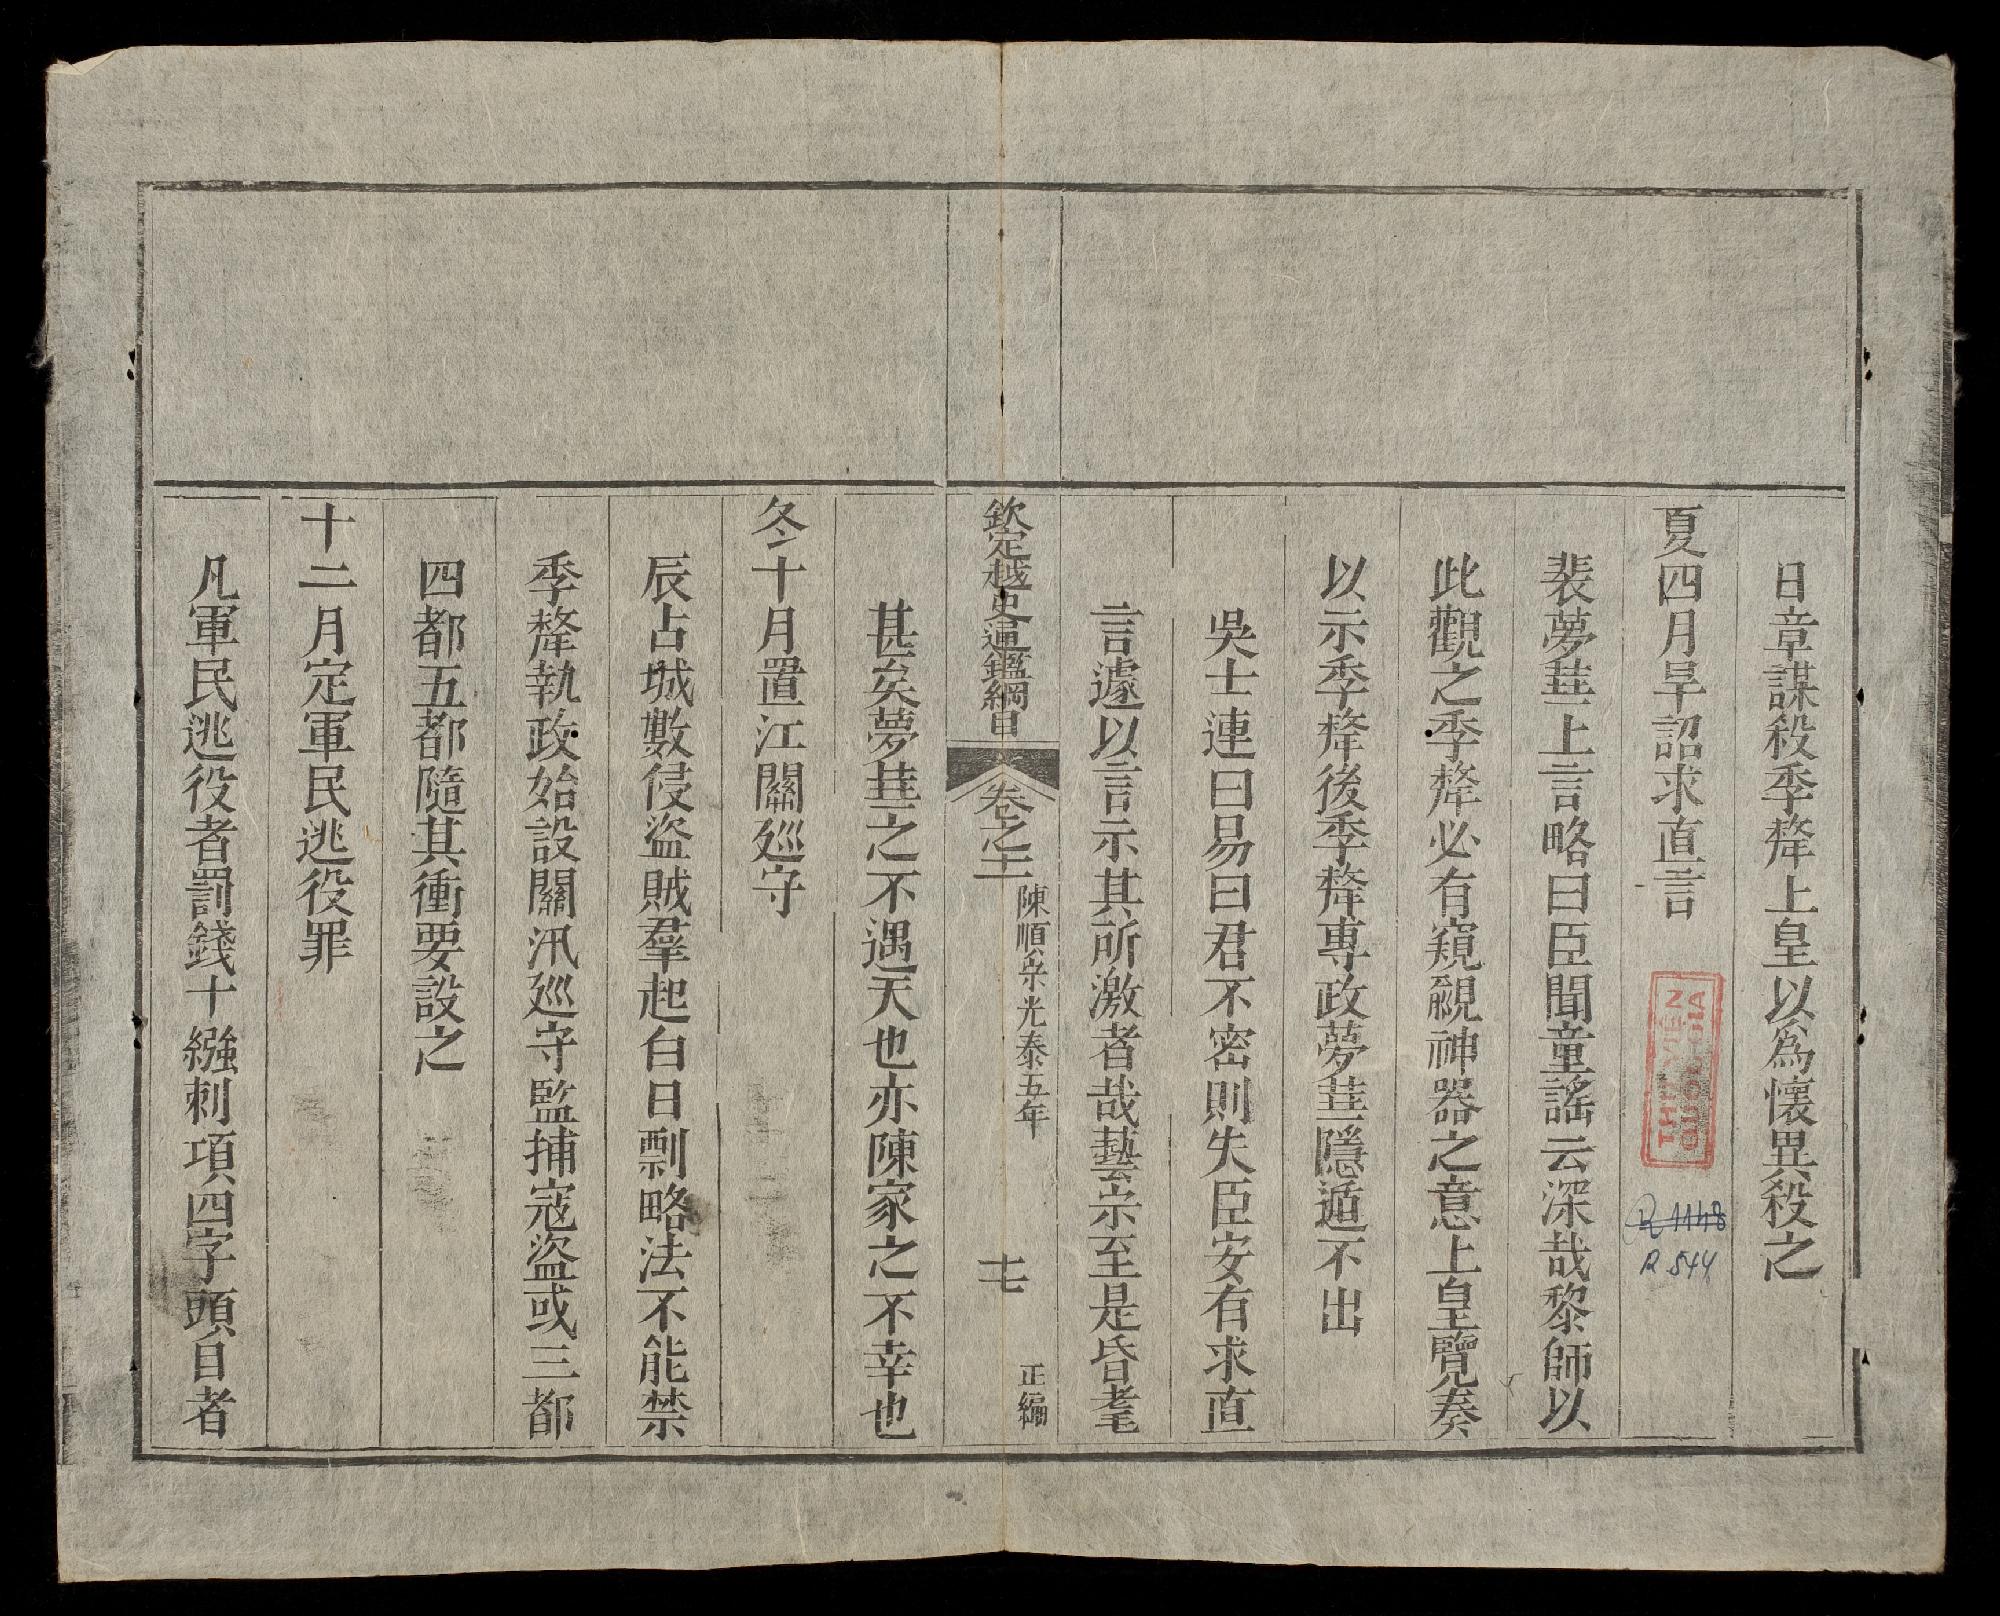 日章謀殺季犛上皇以爲懷異殺之
夏四月旱詔求直言
裴夢莗上言略曰臣聞童謠云深哉黎師以
此觀之季犛必有窺覦神器之意上皇覽奏
以示季犛後季犛專政夢莗隱遁不出
吳士連曰易曰君不密則失臣安有求直
言遽以言示其所激者哉藝宗至是昏耄
欽定越史通鑑綱目
卷之十一
陳順宗光泰五年
十七
正編
甚矣夢莗之不遇天也亦陳家之不幸也
冬十月置江關廵守
辰占城數侵盜賊羣起白日剽略法不能禁
季犛執政始設關汛廵守監捕寇盜或三都
四都五都隨其衝要設之
十二月定軍民逃役罪
凡軍民逃役者罰錢十繦刺項四字頭目者
THƯ VIỆN
QUỐC GIA
R 1148
R 544